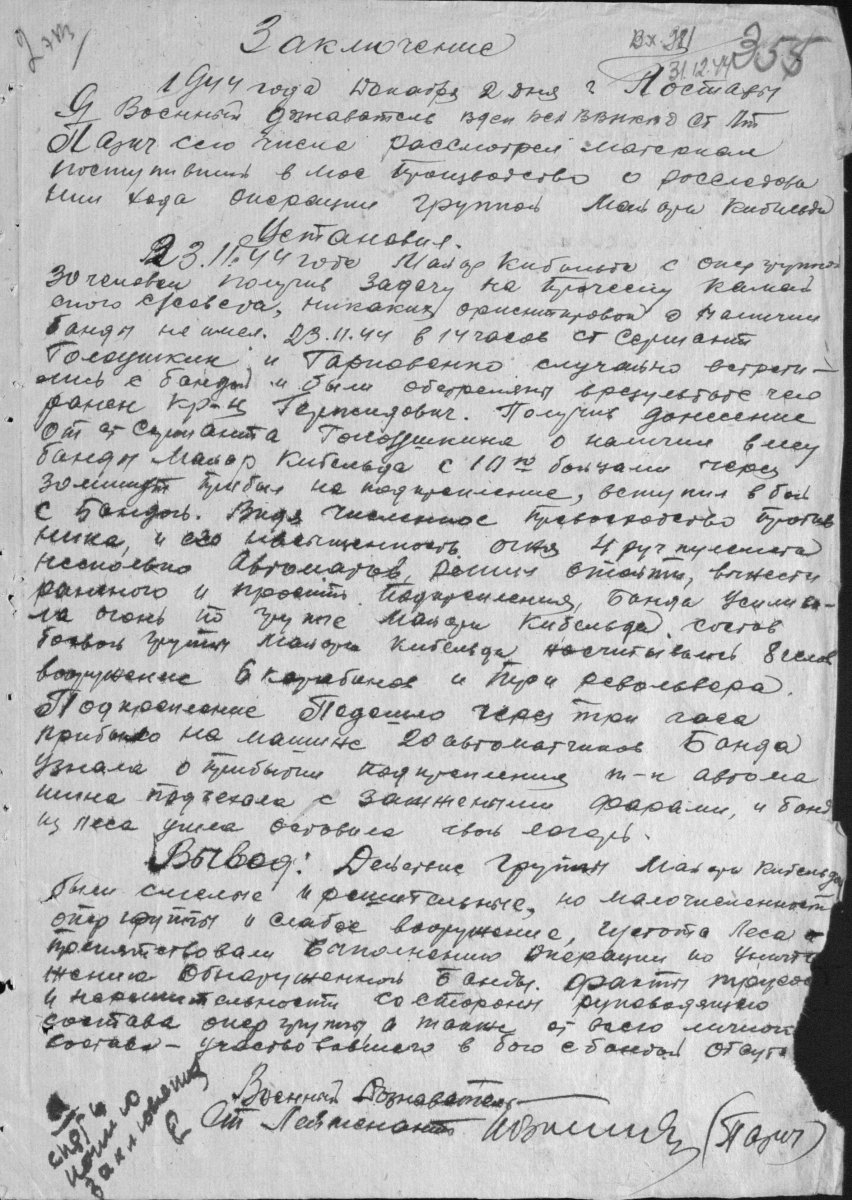 2 экз
Вх. 221
31.12.44
355
Заключение
1944 года Декабря 2 дня г. Поставы
Я Военный дознаватель ст Лт
Пазич сего числа рассмотрел материал
поступивший в мое производство о расследова
нии хода операции группой Майора Кибильда
Установил.
23.11.44 года Майор Кибильда с опергруппой
30 человек получив задачу на проческу Камай
ского с/совета, никаких ориентировок о наличии
банды не имел. 23.11.44 в 14 часов ст Сержант
Голоушкин и Тарновенко случайно встрети-
лись с бандой и были обстреляны врезультате чего
ранен кр-ц. Получив донесение
от ст Сержанта Голоушкина о наличии в лесу
банды Майор Кибельда с 10ю бойцами через
30 минут прибыл на подкрепление, вступил в бой
с Бандой. Видя численное превосходство против
ника, и его насыщенность огня 4 руч пулемета
несколько Автоматов, решил отойти, вынести
раненого и просить Подкрепления, Банда усилива-
ла огонь по группе Майора Кибельда. состав
боевой группы Майора Кибельда насчитывалось 8 челов
вооружение 6 карабинов и Три револьвера.
Подкрепление Подошло через три часа
прибыло на машине 20 автоматчиков Банда
узнала о прибытии подкрепления т-к автома
шина подъехала с зажжеными фарами, и банда
из леса ушла оставила свой лагерь.
Вывод: Действие группы Майора Кибельда
были смелые и решительные, но малочисленность
опергруппы и слабое вооружение, густота Леса
препятствовали выполнению операции по уничто
жению Обнаруженной Банды. Факты трусос
и нерешительности со стороны руководящего
состава опергруппы а также от всего личного
состава - участвовавшего в бою с бандой отсутс
Военный Дознаватель
Ст Лейтенант (Пазич)
снять
копию
заключения